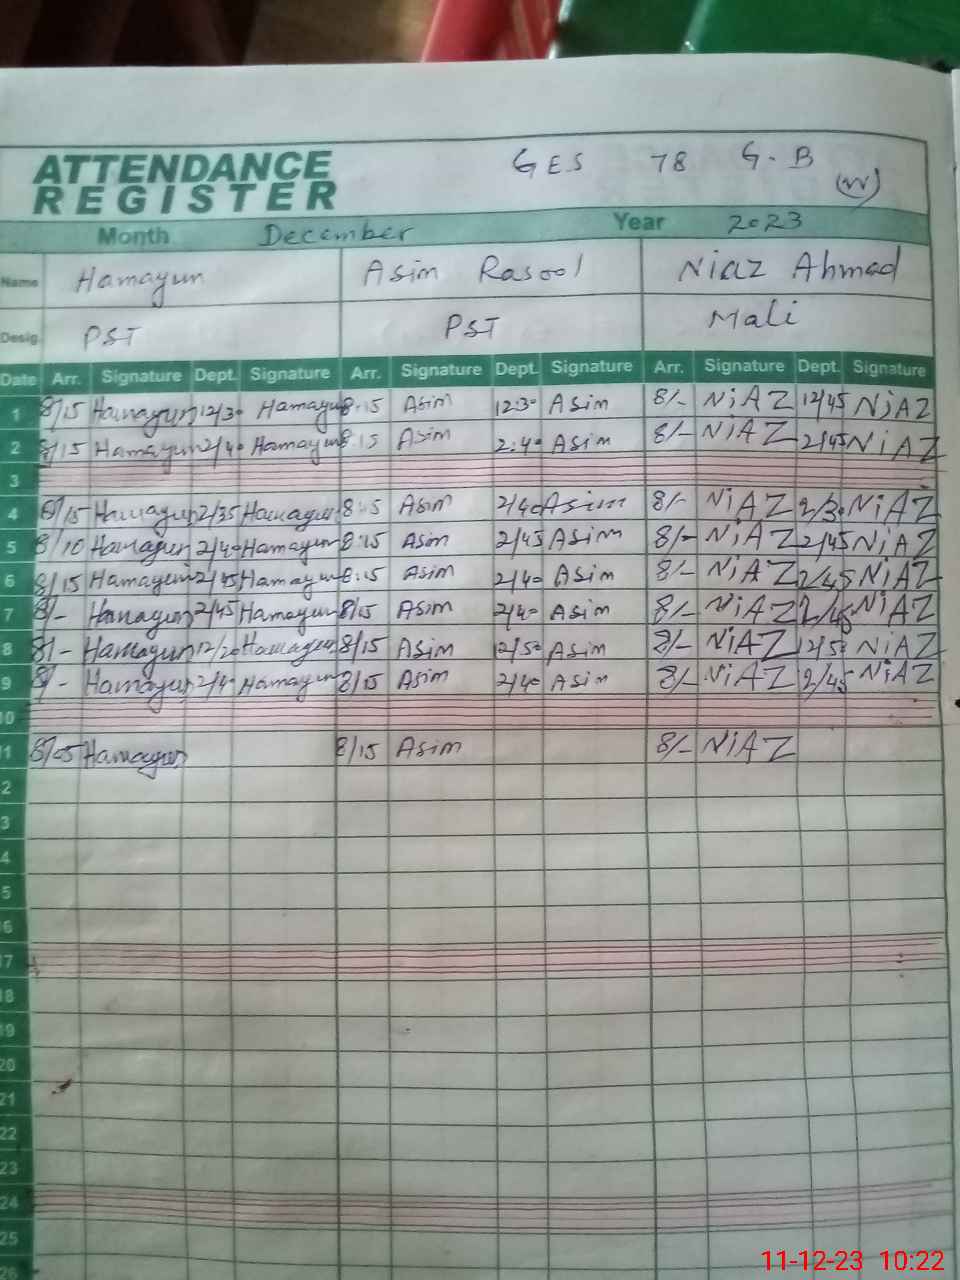 ATTENDANCE
REGISTER
GES 78 G.B
(W)
Month December Year 2023
Name Hamayun Asim Rasool Niaz Ahmad
Desig. PST PST Mali
Date Arr. Signature Dept. Signature Arr. Signature Dept. Signature Arr. Signature Dept. Signature
1 8/15 Hamayun 12/30 Hamayun 8:15 Asim 12:30 Asim 8/- NiAZ 12/45 NiAZ
2 8/15 Hamayun 2/40 Hamayun 8:15 Asim 2:40 Asim 8/- NiAZ 2/45 NiAZ
3
4 8/15 Hamayun 2/35 Hamayun 8:15 Asim 2/40 Asim 8/- NiAZ 2/30 NiAZ
5 8/10 Hamayun 2/40 Hamayun 8:15 Asim 2/45 Asim 8/- NiAZ 2/45 NiAZ
6 8/15 Hamayun 2/45 Hamayun 8:15 Asim 2/40 Asim 8/- NiAZ 2/45 NiAZ
7 8/- Hamayun 2/45 Hamayun 8/15 Asim 2/40 Asim 8/- NiAZ 2/45 NiAZ
8 8/- Hamayun 12/20 Hamayun 8/15 Asim 12/50 Asim 8/- NiAZ 12/50 NiAZ
9 8/- Hamayun 2/40 Hamayun 8/15 Asim 2/40 Asim 8/- NiAZ 2/45 NiAZ
10
11 8/05 Hamayun 8/15 Asim 8/- NiAZ
2
3
4
5
6
17
18
19
20
21
22
23
24
25
26
11-12-23 10:22